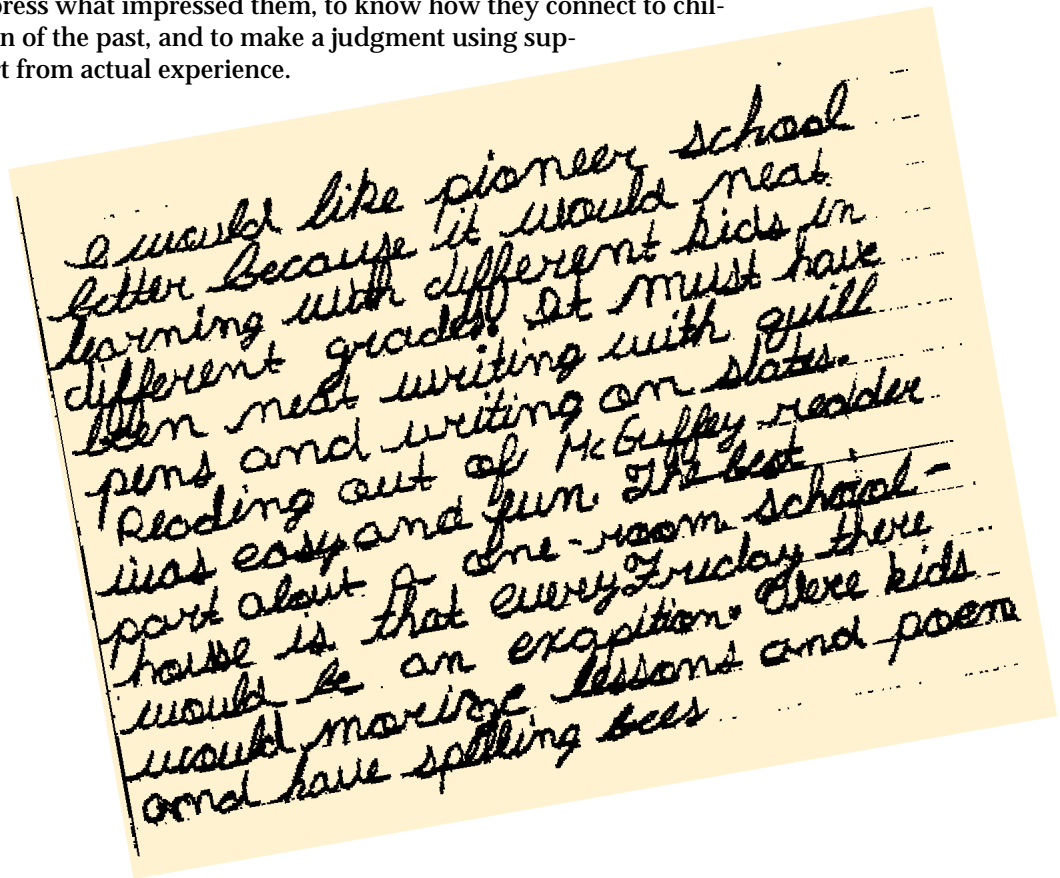 press what impressed them, to know how they connect to chil-
n of the past, and to make a judgment using sup-
t from actual experience.
I would like pioneer school
better because it would neat
learning with different kids in
different grades. It must have
been neat writing with quill
pens and writing on slates.
Reading out of McGuffey reader
was easy and fun. The best
part about A one-room school-
house is that every Friday there
would be an exapition. There kids
would morize lessons and poem
and have spelling bees